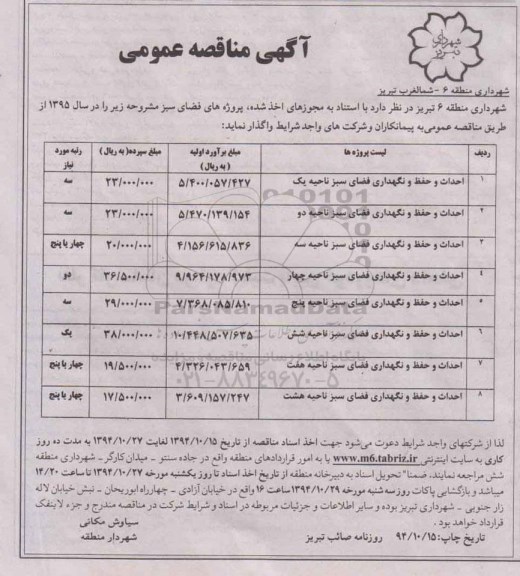 شهرداری
تبریز
آگهی مناقصه عمومی
شهرداری منطقه ۶ -شمالغرب تبریز
شهرداری منطقه ۶ تبریز در نظر دارد با استناد به مجوزهای اخذ شده، پروژه های فضای سبز مشروحه زیر را در سال ۱۳۹۵ از
طریق مناقصه عمومی به پیمانکاران و شرکت های واجد شرایط واگذار نماید:
ردیف لیست پروژه ها مبلغ برآورد اولیه (به ریال) مبلغ سپرده (به ریال) رتبه مورد نیاز
۱ احداث و حفظ و نگهداری فضای سبز ناحیه یک ۵/۴۰۰/۰۵۷/۴۲۷ ۲۳/۰۰۰/۰۰۰ سه
۲ احداث و حفظ و نگهداری فضای سبز ناحیه دو ۵/۴۷۰/۱۳۹/۱۵۴ ۲۳/۰۰۰/۰۰۰ سه
۳ احداث و حفظ و نگهداری فضای سبز ناحیه سه ۴/۱۵۶/۶۱۵/۸۳۶ ۲۰/۰۰۰/۰۰۰ چهار یا پنج
۴ احداث و حفظ و نگهداری فضای سبز ناحیه چهار ۹/۹۶۴/۱۷۸/۹۷۳ ۳۶/۵۰۰/۰۰۰ دو
۵ احداث و حفظ و نگهداری فضای سبز ناحیه پنج ۷/۳۶۸/۰۸۵/۸۱۰ ۲۹/۰۰۰/۰۰۰ سه
۶ احداث و حفظ و نگهداری فضای سبز ناحیه شش ۱۰/۴۴۸/۵۰۷/۶۳۵ ۳۸/۰۰۰/۰۰۰ یک
۷ احداث و حفظ و نگهداری فضای سبز ناحیه هفت ۴/۳۲۶/۰۴۳/۶۵۹ ۱۹/۵۰۰/۰۰۰ چهار یا پنج
۸ احداث و حفظ و نگهداری فضای سبز ناحیه هشت ۳/۶۰۹/۱۵۷/۲۴۷ ۱۷/۵۰۰/۰۰۰ چهار یا پنج
ParsNamadData
۰۲۱-۸۸۳۴۹۶۷۰-۵
لذا از شرکتهای واجد شرایط دعوت می‌شود جهت اخذ اسناد مناقصه از تاریخ ۱۳۹۴/۱۰/۱۵ لغایت ۱۳۹۴/۱۰/۲۷ به مدت ده روز
کاری به سایت اینترنتی www.m6.tabriz.ir یا به امور قراردادهای منطقه واقع در جاده سنتو - میدان کارگر - شهرداری منطقه
شش مراجعه نمایند، ضمنا" تحویل اسناد به دبیرخانه منطقه از تاریخ اخذ اسناد تا روز یکشنبه مورخه ۱۳۹۴/۱۰/۲۷ تا ساعت ۱۴/۲۰
میباشد و بازگشایی پاکات روز سه شنبه مورخه ۱۳۹۴/۱۰/۲۹ ساعت ۱۶ واقع در خیابان آزادی - چهارراه ابوریحان - نبش خیابان لاله
زار جنوبی - شهرداری تبریز بوده و سایر اطلاعات و جزئیات مربوطه در اسناد و شرایط شرکت در مناقصه مندرج و جزء لاینفک
قرارداد خواهد بود.
سیاوش مکانی
شهردار منطقه
تاریخ چاپ: ۹۴/۱۰/۱۵ روزنامه صائب تبریز